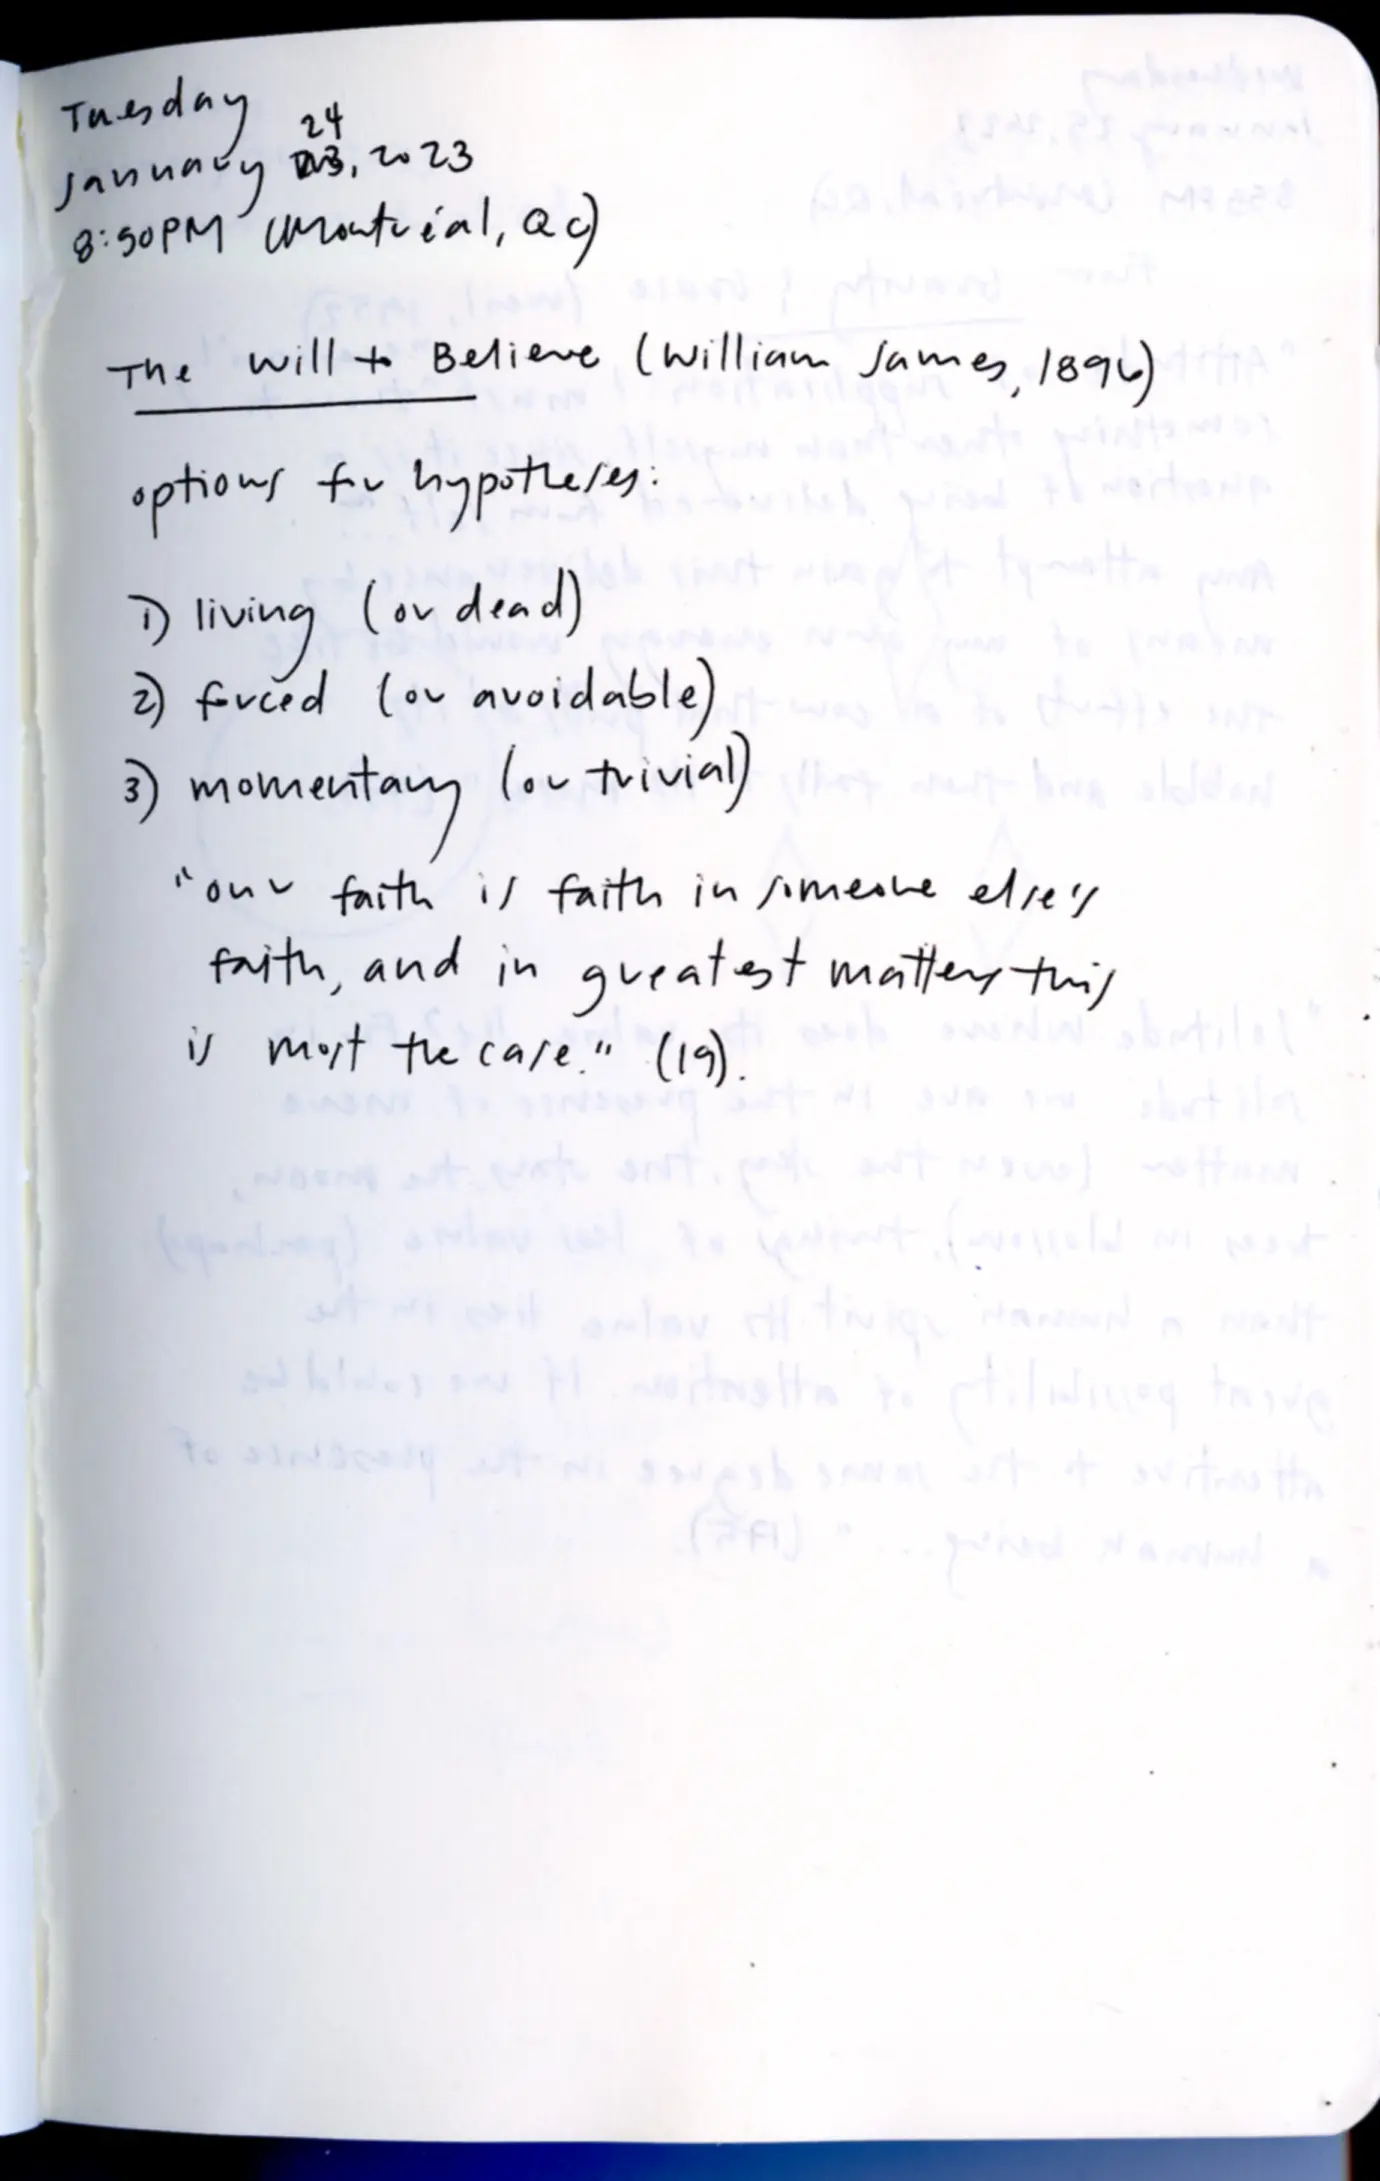 Tuesday
24
January 23, 2023
8:50PM (Montréal, QC)
The Will to Believe (William James, 1896)
options for hypotheses:
1) living (or dead)
2) forced (or avoidable)
3) momentary (or trivial)
"our faith is faith in someone else's
faith, and in greatest matters this
is most the case." (19).